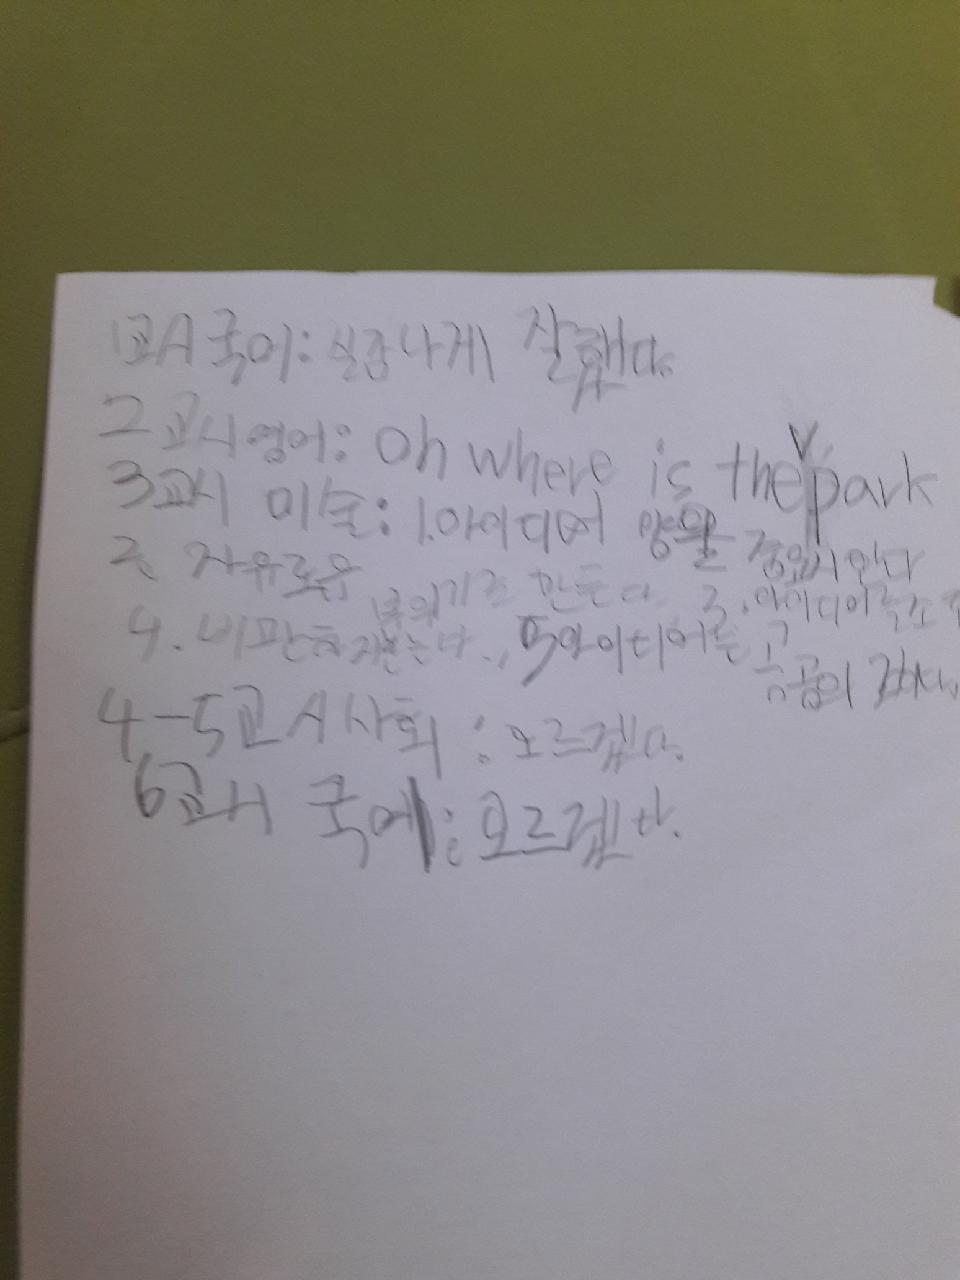 1교시 국어: 실감나게 잘했다.
2교시 영어: Oh where is the park
3교시 미술: 1. 아이디어 양을
2. 자유로운 분위기로 만든다 3. 아이디어를
4. 비판하지않는다. 5 아이디어를
4-5교시 사회: 모르겠다.
6교시 국어: 모르겠다.